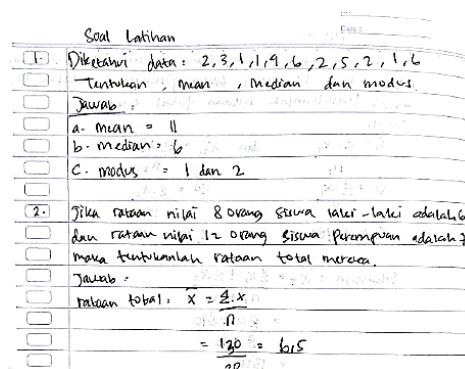 Soal Latihan
1. Diketahui data : 2,3,1,1,4,6,2,5,2,1,6
Tentukan, mean, median dan modus
Jawab :
a. mean = 11
b. median = 6
c. modus = 1 dan 2
2. Jika rataan nilai 8 orang siswa laki-laki adalah 6
dan rataan nilai 12 orang siswa perempuan adalah 7
maka tentukanlah rataan total mereka.
Jawab :
rataan total : x̄ = Σ.x
n
= 130 = 6,5
20